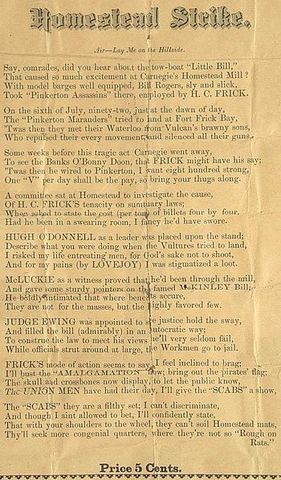 Homestead Strike.
Air—Lay Me on the Hillside.
Say, comrades, did you hear about the tow-boat "Little Bill,"
That caused so much excitement at Carnegie's Homestead Mill?
With model barges well equipped, Bill Rogers, sly and slick,
Took "Pinkerton Assassins" there, employed by H. C. FRICK.
On the sixth of July, ninety-two, just at the dawn of day,
The "Pinkerton Marauders" tried to land at Fort Frick Bay,
'Twas then they met their Waterloo from Vulcan's brawny sons,
Who repulsed their every movement and silenced all their guns.
Some weeks before this tragic act Carnegie went away,
To see the Banks O'Bonny Doon, that FRICK might have his say;
'Twas then he wired to Pinkerton, I want eight hundred strong,
One "V" per day shall be the pay, so bring your thugs along.
A committee sat at Homestead to investigate the cause,
Of H. C. FRICK'S tenacity on sumptuary laws;
When asked to state the cost (per ton) of billets four by four,
Had he been in a swearing room, I fancy he'd have swore.
HUGH O'DONNELL as a leader was placed upon the stand;
Describe what you were doing when the Vultures tried to land,
I risked my life entreating men, for God's sake not to shoot,
And for my pains (by LOVEJOY) I was stigmatized a loot.
McLUCKIE as a witness proved that he'd been through the mill,
And gave some sturdy pointers on the famed McKINLEY Bill;
He boldly intimated that where benefits accure,
They are not for the masses, but the highly favored few.
JUDGE EWING was appointed to see justice hold the sway,
And filled the bill (admirably) in an autocratic way;
To construe the law to meet his views he'll very seldom fail,
While officials strut around at large, the Workmen go to jail.
FRICK'S mode of action seems to say, I feel inclined to brag;
I'll bust the "AMALGAMATION" now; bring out the pirates' flag;
The skull and crossbones now display, to let the public know,
The UNION MEN have had their day, I'll give the "SCABS" a show.
The "SCABS" they are a filthy set; I can't discriminate,
And though I aint allowed to bet, I'll confidently state,
That with your shoulders to the wheel, they can't soil Homestead mats,
They'll seek more congenial quarters, where they're not so "Rough on
Rats."
Price 5 Cents.